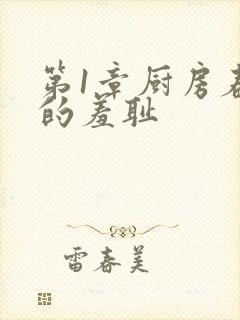 第1章厨房春
的羞耻
雷春美